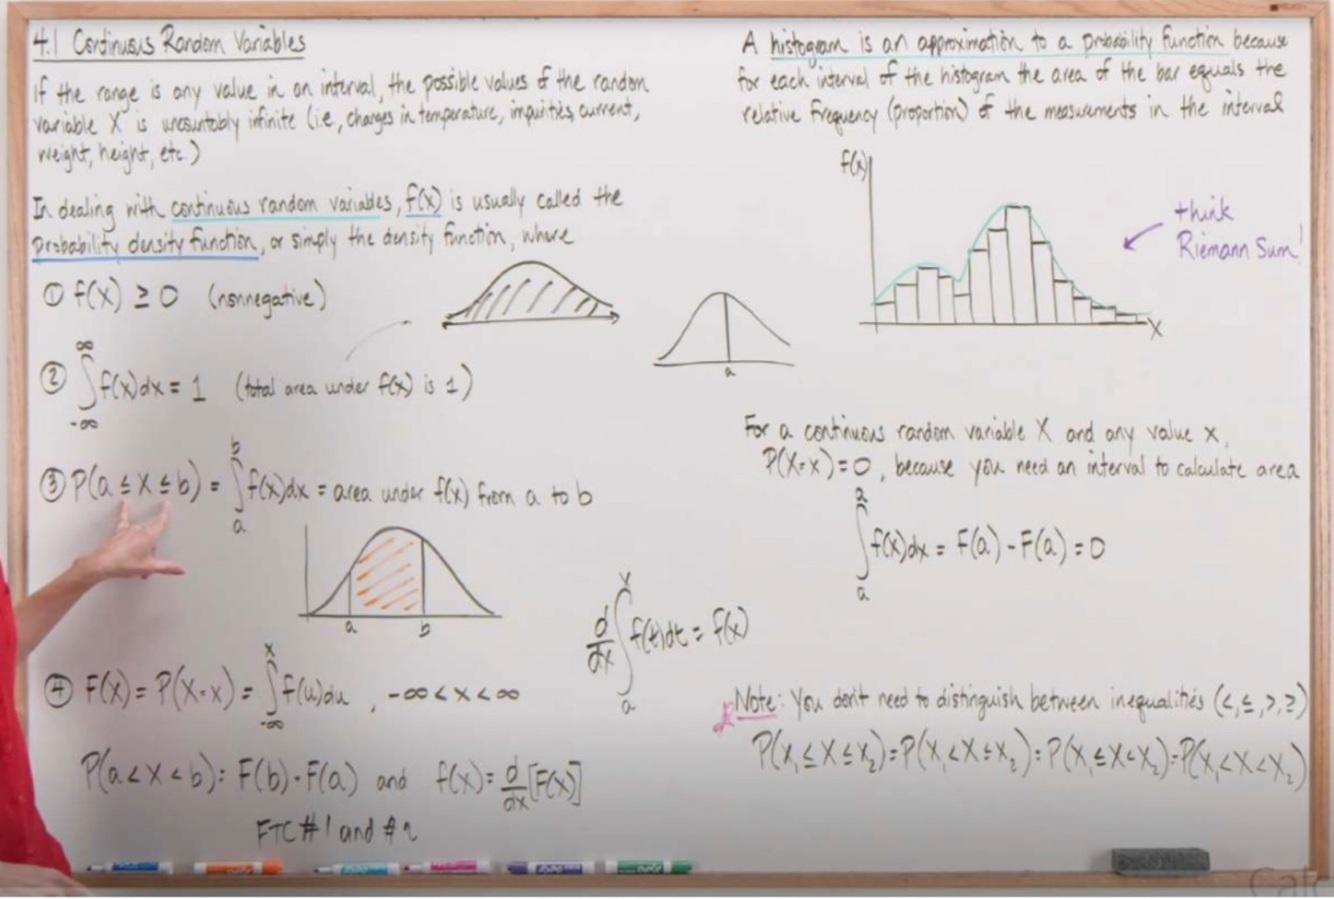 4.1 Continuous Random Variables
If the range is any value in an interval, the possible values of the random
variable X is uncountably infinite (i.e., changes in temperature, impurities, current,
weight, height, etc.)
In dealing with continuous random variables, f(x) is usually called the
probability density function, or simply the density function, where
① f(x) ≥ 0 (nonnegative)
② ∫_{-∞}^{∞} f(x)dx = 1 (total area under f(x) is 1)
a
③ P(a ≤ X ≤ b) = ∫_a^b f(x)dx = area under f(x) from a to b
a b
④ F(x) = P(X-x) = ∫_{-∞}^x f(u)du , -∞ < x < ∞
d/dx ∫_a^x f(t)dt = f(x)
P(a < X < b) = F(b) - F(a) and f(x) = d/dx [F(x)]
FTC #1 and #2
A histogram is an approximation to a probability function because
for each interval of the histogram the area of the bar equals the
relative frequency (proportion) of the measurements in the interval
f(x)
think
Riemann Sum!
X
For a continuous random variable X and any value x,
P(X=x) = 0, because you need an interval to calculate area
∫_a^a f(x)dx = F(a) - F(a) = 0
Note: You don't need to distinguish between inequalities (<, ≤, >, ≥)
P(x₁ ≤ X ≤ x₂) = P(x₁ < X ≤ x₂) = P(x₁ ≤ X < x₂) = P(x₁ < X < x₂)